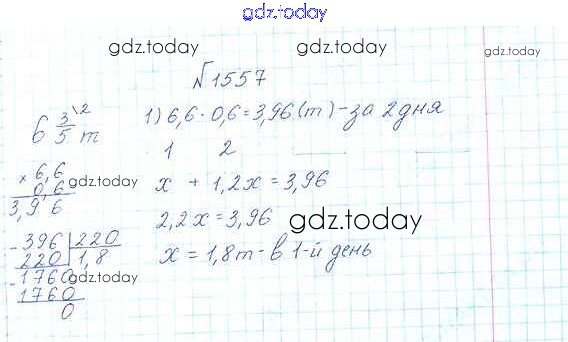 gdz.today
gdz.today gdz.today gdz.today
№1557
6 3/5 \2 т
1) 6,6 · 0,6 = 3,96 (т) - за 2 дня
1 2
× 6,6
0,6
3,96
gdz.today
x + 1,2x = 3,96
2,2x = 3,96
gdz.today
x = 1,8т - в 1-й день
- 396 | 220
220 | 1,8
- 1760
1760
0
gdz.today